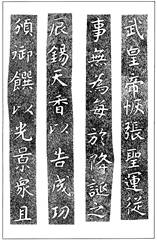 武皇帝恢張聖運従
事無為每於降誕之
辰錫天香以告成功
頒御饌以光景衆且